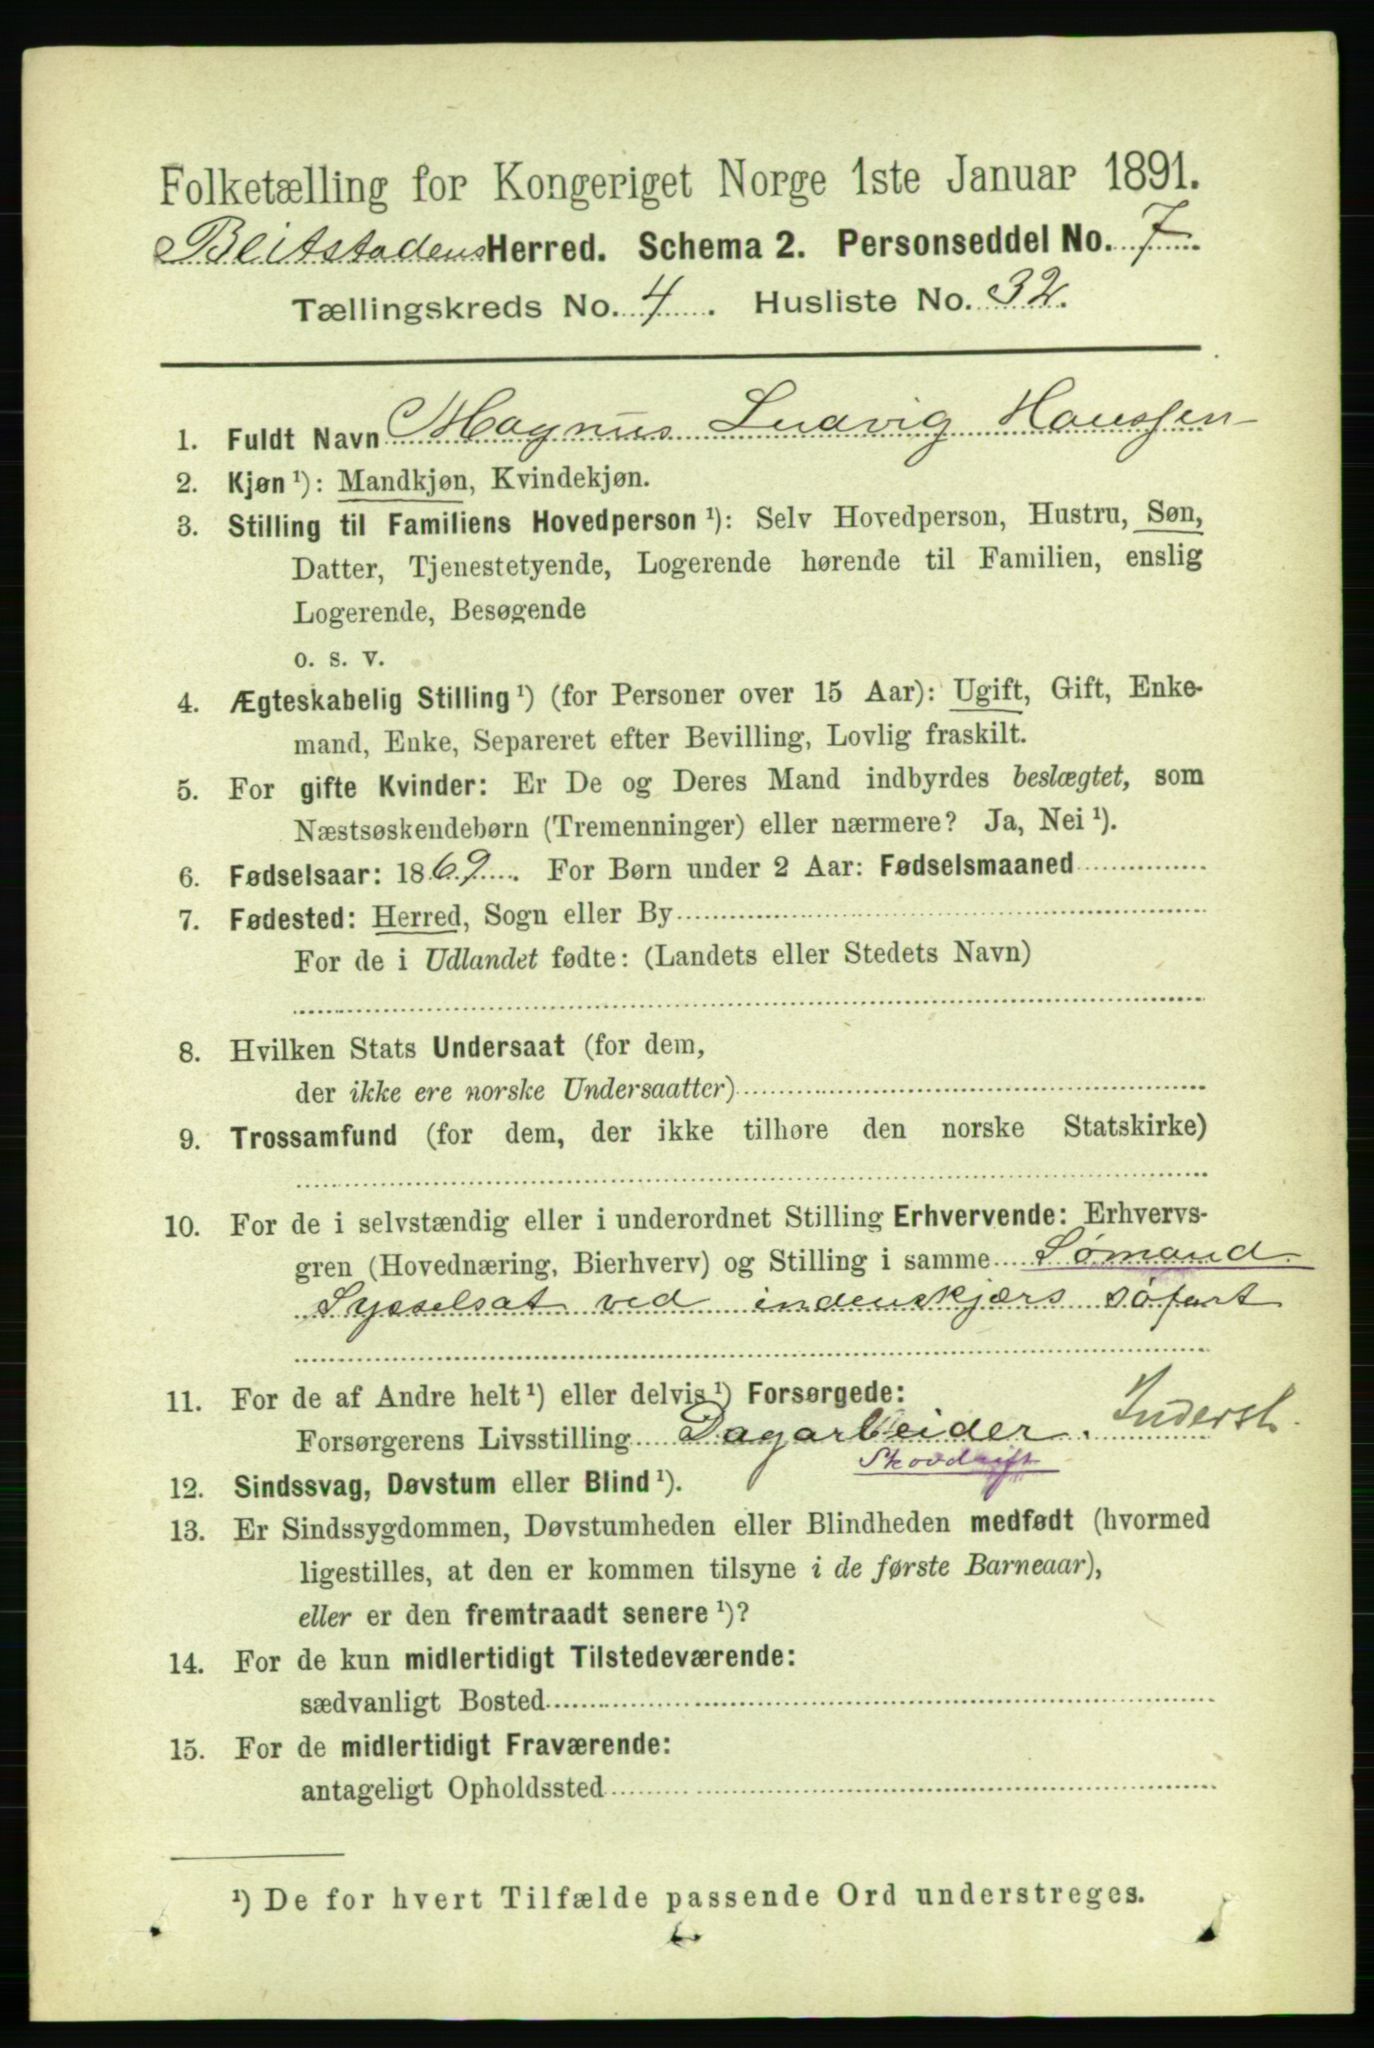 Folketælling for Kongeriget Norge 1ste Januar 1891.
Beitstadens Herred. Schema 2. Personseddel No. 7
Tællingskreds No. 4. Husliste No. 32.
1. Fuldt Navn Magnus Ludvig Hanssen
2. Kjøn ¹): Mandkjøn, Kvindekjøn.
3. Stilling til Familiens Hovedperson ¹): Selv Hovedperson, Hustru, Søn,
Datter, Tjenestetyende, Logerende hørende til Familien, enslig
Logerende, Besøgende
o. s. v.
4. Ægteskabelig Stilling ¹) (for Personer over 15 Aar): Ugift, Gift, Enke-
mand, Enke, Separeret efter Bevilling, Lovlig fraskilt.
5. For gifte Kvinder: Er De og Deres Mand indbyrdes beslægtet, som
Næstsøskendebørn (Tremenninger) eller nærmere? Ja, Nei ¹).
6. Fødselsaar: 1869. For Børn under 2 Aar: Fødselsmaaned
7. Fødested: Herred, Sogn eller By
For de i Udlandet fødte: (Landets eller Stedets Navn)
8. Hvilken Stats Undersaat (for dem,
der ikke ere norske Undersaatter)
9. Trossamfund (for dem, der ikke tilhøre den norske Statskirke)
10. For de i selvstændig eller i underordnet Stilling Erhvervende: Erhvervs-
gren (Hovednæring, Bierhverv) og Stilling i samme Sømand
Sysselsat ved indenskjærs søfart
11. For de af Andre helt ¹) eller delvis ¹) Forsørgede:
Forsørgerens Livsstilling Dagarbeider. Inderst.
Skovdrift
12. Sindssvag, Døvstum eller Blind ¹).
13. Er Sindssygdommen, Døvstumheden eller Blindheden medfødt (hvormed
ligestilles, at den er kommen tilsyne i de første Barneaar),
eller er den fremtraadt senere ¹)?
14. For de kun midlertidigt Tilstedeværende:
sædvanligt Bosted
15. For de midlertidigt Fraværende:
antageligt Opholdssted
¹) De for hvert Tilfælde passende Ord understreges.